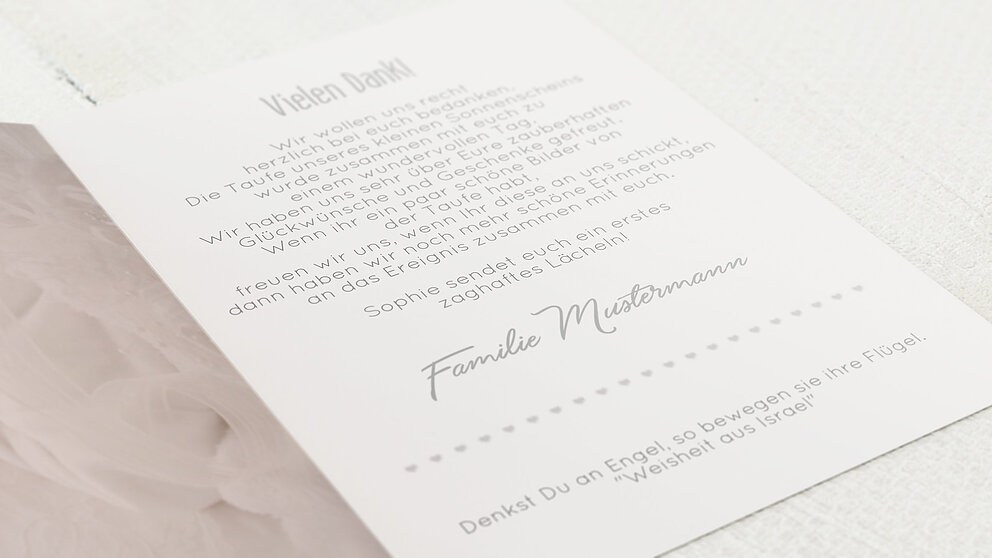 Vielen Dank!
Wir wollen uns recht
herzlich bei euch bedanken.
Die Taufe unseres kleinen Sonnenscheins
wurde zusammen mit euch zu
einem wundervollen Tag.
Wir haben uns sehr über Eure zauberhaften
Glückwünsche und Geschenke gefreut.
Wenn ihr ein paar schöne Bilder von
der Taufe habt,
freuen wir uns, wenn Ihr diese an uns schickt,
dann haben wir noch mehr schöne Erinnerungen
an das Ereignis zusammen mit euch.
Sophie sendet euch ein erstes
zaghaftes Lächeln!
Familie Mustermann
Denkst Du an Engel, so bewegen sie ihre Flügel.
"Weisheit aus Israel"